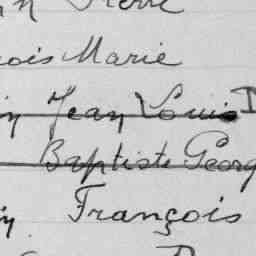 Pierre
ois Marie
in Jean Louis
Baptiste Georg
in François